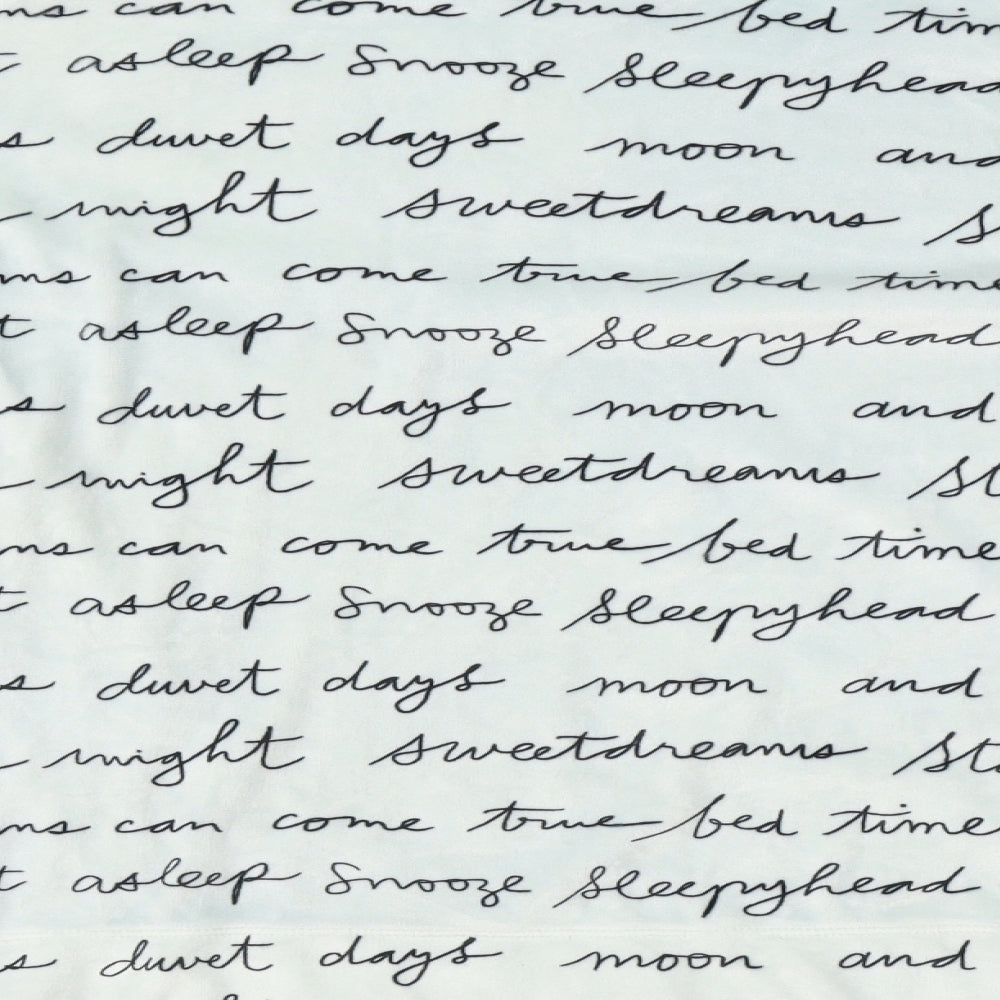 ms can come true bed tim
t asleep Snooze Sleepyhead
s duvet days moon and
night sweetdreams S
ms can come true bed time
t asleep Snooze Sleepyhead
s duvet days moon and
night sweetdreams St
ms can come true bed time
t asleep Snooze Sleepyhead
s duvet days moon and
night sweetdreams Sta
ms can come true bed time
t asleep Snooze Sleepyhead
s duvet days moon and